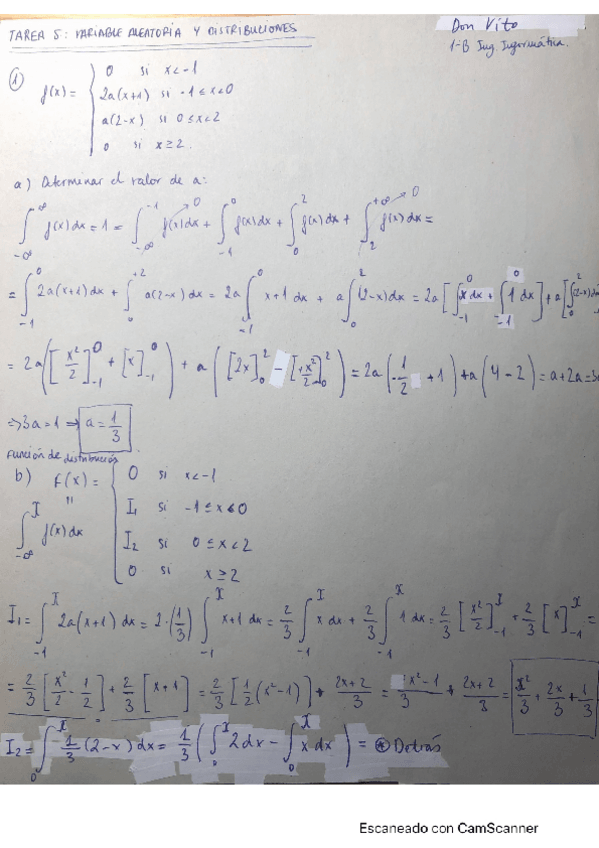 TAREA 5: VARIABLE ALEATORIA Y DISTRIBUCIONES
Don Vito
1-B Ing. Informática.
① f(x) = { 0 si x < -1
2a(x+1) si -1 ≤ x < 0
a(2-x) si 0 ≤ x < 2
0 si x ≥ 2.
a) Determinar el valor de a:
∫_{-∞}^{∞} f(x)dx = 1 = ∫_{-∞}^{-1} f(x)dx → 0 + ∫_{-1}^{0} f(x)dx + ∫_{0}^{2} f(x)dx + ∫_{2}^{+∞} f(x)dx → 0 =
= ∫_{-1}^{0} 2a(x+1)dx + ∫_{0}^{+2} a(2-x)dx = 2a ∫_{-1}^{0} x+1 dx + a ∫_{0}^{2} (2-x)dx = 2a [ ∫_{-1}^{0} x dx + ∫_{-1}^{0} 1 dx ] + a [ ∫_{0}^{2} (2-x)dx
= 2a ( [x²/2]_{-1}^{0} + [x]_{-1}^{0} ) + a ( [2x]_{0}^{2} - [+x²/2]_{0}^{2} ) = 2a (-1/2 + 1) + a (4 - 2) = a + 2a = 3a
⇒ 3a = 1 ⇒ a = 1/3
Función de distribución
b) F(x) = { 0 si x < -1
I₁ si -1 ≤ x < 0
I₂ si 0 ≤ x < 2
0 si x ≥ 2
"
∫_{-∞}^{X} f(x)dx
I₁ = ∫_{-1}^{X} 2a(x+1) dx = 2·(1/3) ∫_{-1}^{X} x+1 dx = 2/3 ∫_{-1}^{X} x dx + 2/3 ∫_{-1}^{X} 1 dx = 2/3 [x²/2]_{-1}^{X} + 2/3 [x]_{-1}^{X} =
= 2/3 [x²/2 - 1/2] + 2/3 [x+1] = 2/3 [1/2 (x²-1)] + 2x+2/3 = x²-1/3 + 2x+2/3 = x²/3 + 2x/3 + 1/3
I₂ = ∫_{0}^{X} 1/3 (2-x) dx = 1/3 ( ∫_{0}^{X} 2dx - ∫_{0}^{X} x dx ) = ⊛ Detrás
Escaneado con CamScanner